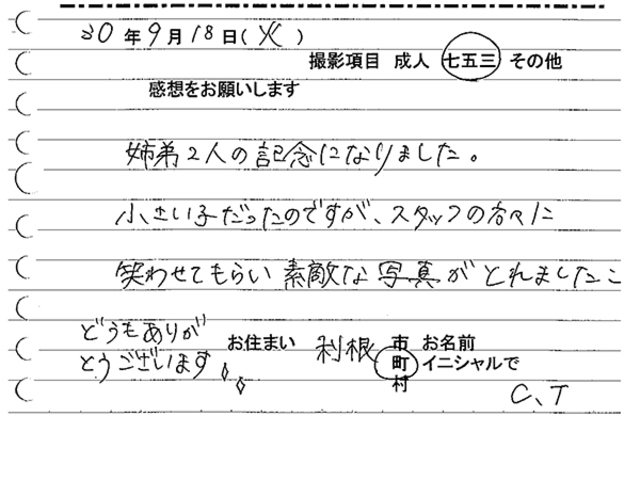 30年9月18日(火)
撮影項目 成人 七五三 その他
感想をお願いします
姉弟2人の記念になりました。
小さい子だったのですが、スタッフの方々に
笑わせてもらい素敵な写真がとれましたこ
どうもありが
とうございます
お住まい 利根 市 町 村
お名前 イニシャルで
C、T